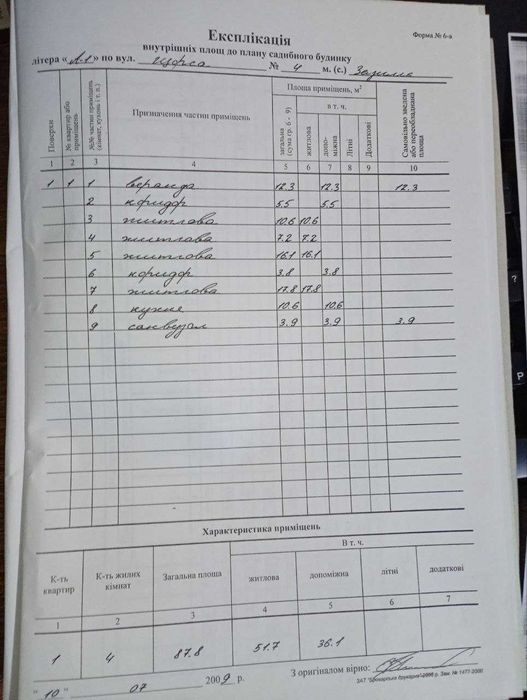 Форма № 6-а
Експлікація
внутрішніх площ до плану садибного будинку
літера « А-1 » по вул. № 4 м. (с.)
Поверхи
№ квартир або приміщень
№№ частин приміщень (кімнат, кухонь і т. п.)
Призначення частин приміщень
Площа приміщень, м²
загальна (сума гр. 6 - 9)
в т. ч.
житлова
допоміжна
Літні
Додаткові
Самовільно зведена або переобладнана площа
1 2 3 4 5 6 7 8 9 10
1 1 1 веранда 12.3 12.3 12.3
2 коридор 5.5 5.5
3 житлова 10.6 10.6
4 житлова 7.2 7.2
5 житлова 16.1 16.1
6 коридор 3.8 3.8
7 житлова 17.8 17.8
8 кухня 10.6 10.6
9 санвузол 3.9 3.9 3.9
Характеристика приміщень
К-ть квартир
К-ть жилих кімнат
Загальна площа
В т. ч.
житлова
допоміжна
літні
додаткові
1 2 3 4 5 6 7
1 4 87.8 51.7 36.1
" 10 " 07 2009 р.
З оригіналом вірно:
ЗАТ "Броварська друкарня" р. Зам. № 1477-2000